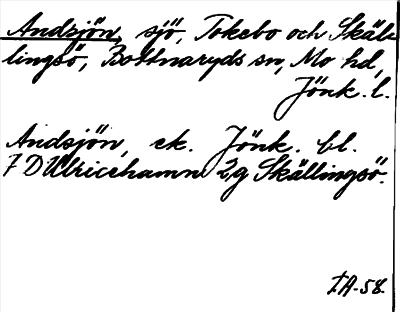 Andsjön, sjö, Tokebo och Skäl-
lingsö, Bottnaryds sn, Mo hd,
Jönk. l.
Andsjön, ek. Jönk. bl.
7 D Ulricehamn 2,g Skällingsö.
I.A-58.